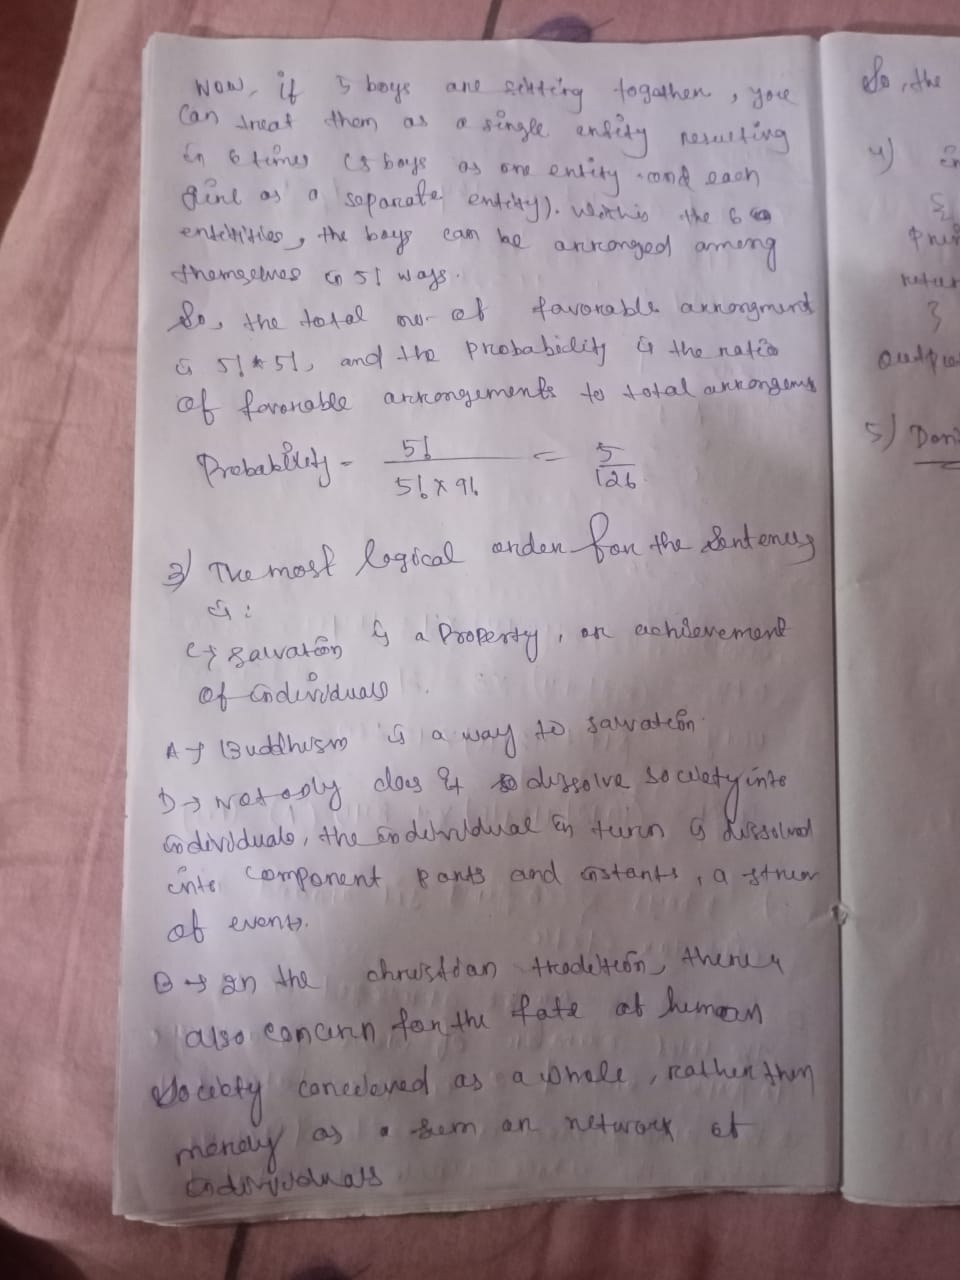 Now, if 5 boys are sitting togather, you
can treat them as a single entity resulting
in 6 times (5 boys as one entity and each
girl as a separate entity). Within the 6
entitities, the boys can be arranged among
themselves in 5! ways.
So, the total no. of favorable arrangment
is 5! * 5!, and the probability is the ratio
of favorable arrangements to total arrangems
Probability - 5! / 5! x 9! = 5 / 126
3) The most logical order for the sentences
is :
C → Salvation is a Property, or achievement
of individuals
A → Buddhism is a way to salvation.
D → Not only does it dissolve society into
individuals, the individual in turn is dissolved
into component parts and instants, a
of events.
B → In the christian tradition, there is
also concern for the fate of human
Society conceived as a whole, rather than
merely as a sum or network of
individuals
So, the
4)
5)